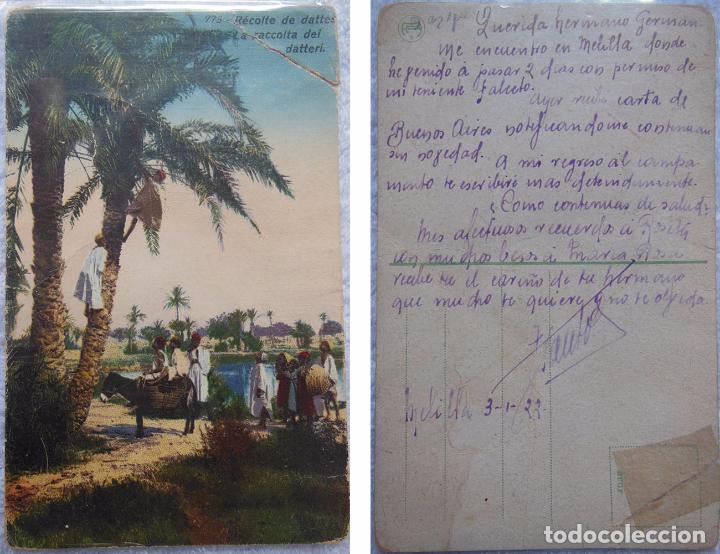 773 - Récolte de dattes
La raccolta dei
datteri.
Querida hermano German.
Me encuentro en Melilla donde
he venido á pasar 2 dias con permiso de
mi teniente Falceto.
Ayer recibi carta de
Buenos Aires notificandome continuan
sin novedad.
A mi regreso al campa-
mento te escribiré mas detenidamente.
¿Como continuas de salud?
Mis afectuosos recuerdos á Rosita
con muchos besos á Maria Rosa
recibe tu el cariño de tu hermano
que mucho te quiere y no te olvida.
Melilla 3-1-22.
todocoleccion.net